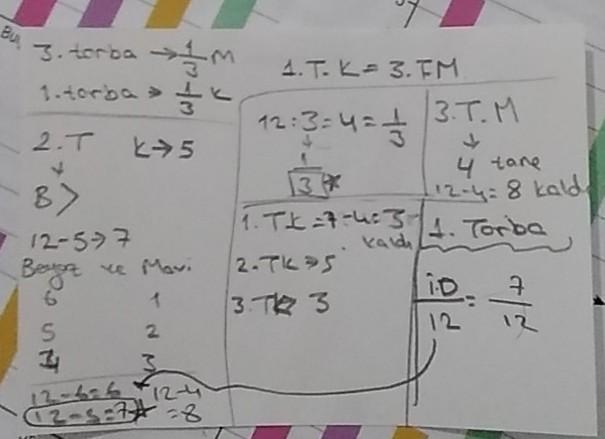 3. torba → 1/3 M
1. torba → 1/3 K
1.T. K = 3. T M
2. T K → 5
↓
B >
12-5 → 7
Beyaz ve Mavi
6 1
5 2
4 3
12-6=6 12-4
12-5=7 =8
12:3=4=1/3
↓
1
3
3.T.M
↓
4 tane
12-4=8 kaldı
1. TK=7-4=3
kaldı
2. TK → 5
3. TK 3
1. Torba
İ.D/12 = 7/12